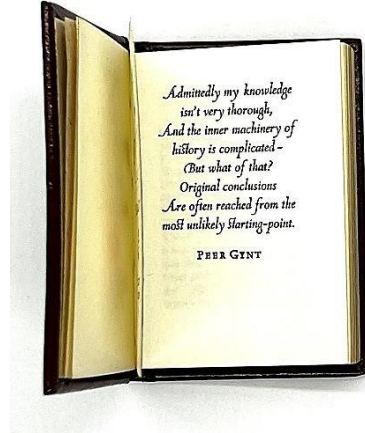 Admittedly my knowledge
isn't very thorough,
And the inner machinery of
history is complicated –
But what of that?
Original conclusions
Are often reached from the
most unlikely starting-point.
PEER GYNT